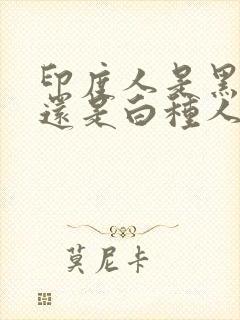 印度人是黑
還是白種人
莫尼卡